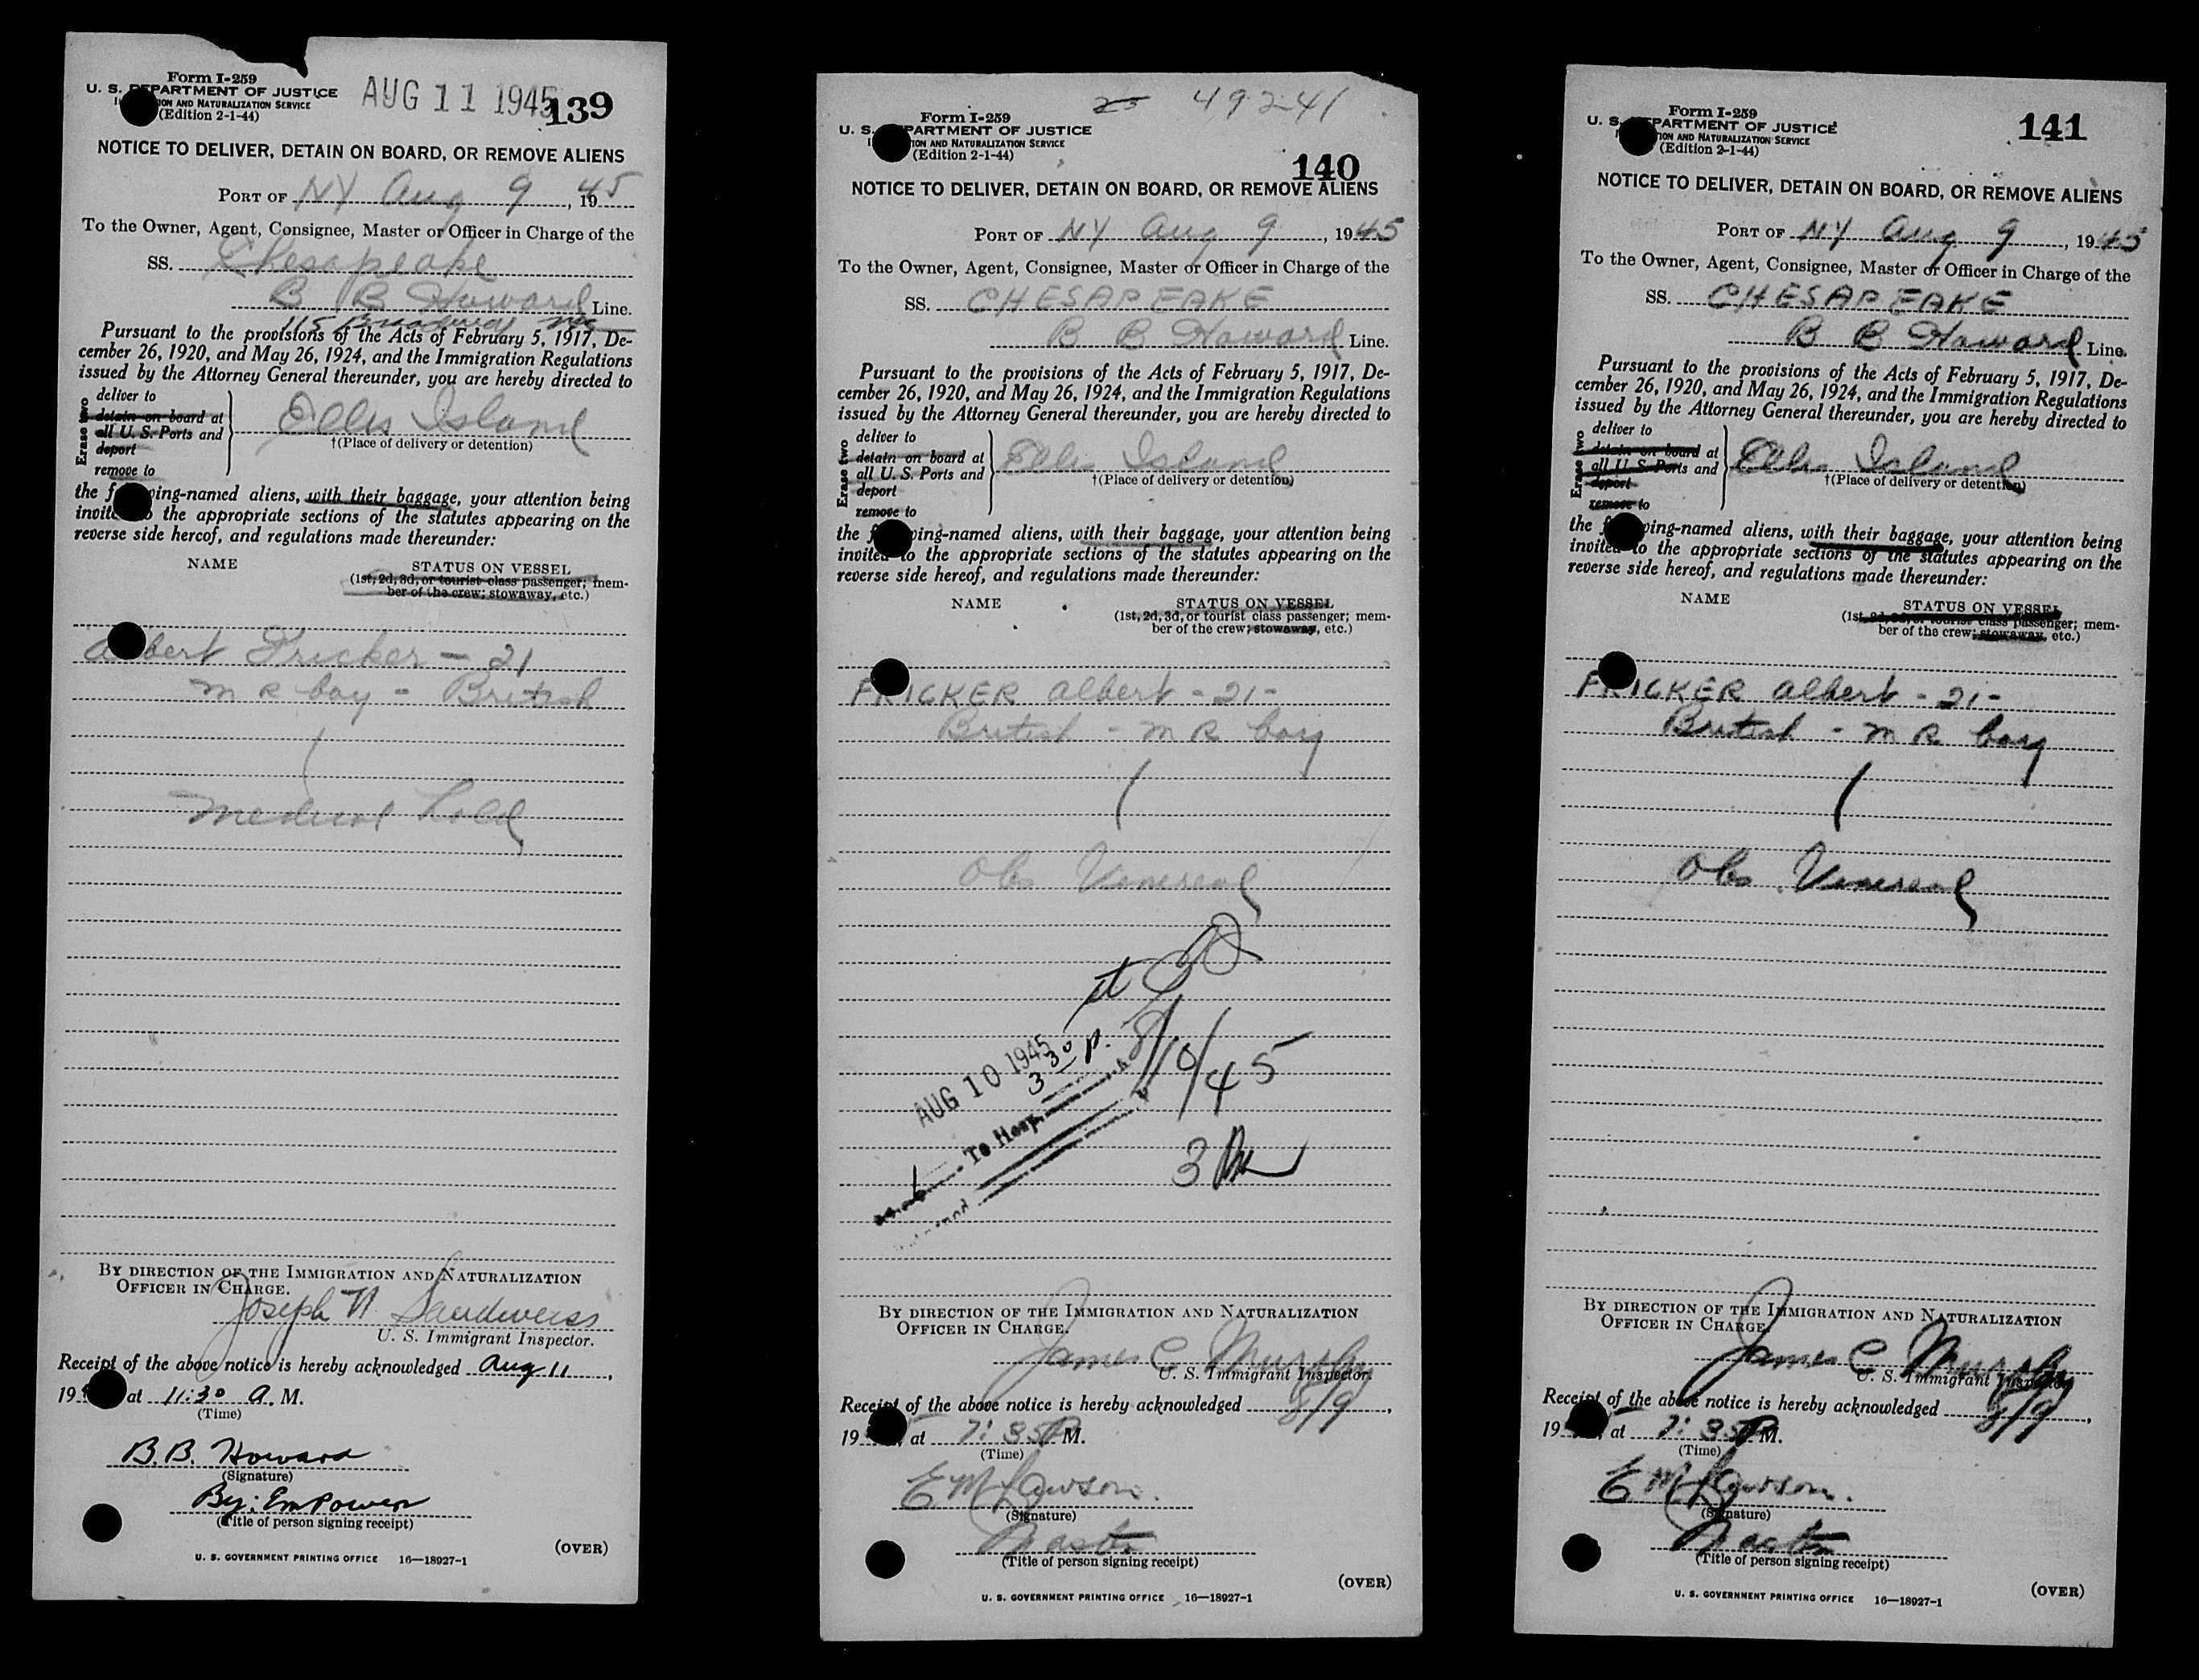 Form I-259
U. S. DEPARTMENT OF JUSTICE
ION AND NATURALIZATION SERVICE
(Edition 2-1-44)
AUG 11 1945
139
NOTICE TO DELIVER, DETAIN ON BOARD, OR REMOVE ALIENS
PORT OF NY Aug 9, 1945
To the Owner, Agent, Consignee, Master or Officer in Charge of the
SS. Chesapeake
B B Howard Line.
115 Broadway NYC
Pursuant to the provisions of the Acts of February 5, 1917, De-
cember 26, 1920, and May 26, 1924, and the Immigration Regulations
issued by the Attorney General thereunder, you are hereby directed to
Erase two
deliver to
detain on board at
all U. S. Ports and
deport
remove to
Ellis Island
†(Place of delivery or detention)
the following-named aliens, with their baggage, your attention being
invited to the appropriate sections of the statutes appearing on the
reverse side hereof, and regulations made thereunder:
NAME STATUS ON VESSEL
(1st, 2d, 3d, or tourist class passenger; mem-
ber of the crew; stowaway, etc.)
Albert Fricker - 21
M R boy - British
Medical Hold
BY DIRECTION OF THE IMMIGRATION AND NATURALIZATION
OFFICER IN CHARGE.
Joseph N. Sandweiss
U. S. Immigrant Inspector.
Receipt of the above notice is hereby acknowledged Aug 11,
19 at 11:30 A. M.
(Time)
B.B. Howard
(Signature)
By: Em Power
(Title of person signing receipt)
(OVER)
U. S. GOVERNMENT PRINTING OFFICE 16—18927-1
25 49241
Form I-259
U. S. DEPARTMENT OF JUSTICE
ION AND NATURALIZATION SERVICE
(Edition 2-1-44)
140
NOTICE TO DELIVER, DETAIN ON BOARD, OR REMOVE ALIENS
PORT OF NY Aug 9, 1945
To the Owner, Agent, Consignee, Master or Officer in Charge of the
SS. CHESAPEAKE
B B Howard Line.
Pursuant to the provisions of the Acts of February 5, 1917, De-
cember 26, 1920, and May 26, 1924, and the Immigration Regulations
issued by the Attorney General thereunder, you are hereby directed to
Erase two
deliver to
detain on board at
all U. S. Ports and
deport
remove to
Ellis Island
†(Place of delivery or detention)
the following-named aliens, with their baggage, your attention being
invited to the appropriate sections of the statutes appearing on the
reverse side hereof, and regulations made thereunder:
NAME STATUS ON VESSEL
(1st, 2d, 3d, or tourist class passenger; mem-
ber of the crew; stowaway, etc.)
FRICKER Albert - 21 -
British - M R boy
Obs Venereal
8/10/45
AUG 10 1945
3 30 P.
To Hosp.
3 PM
BY DIRECTION OF THE IMMIGRATION AND NATURALIZATION
OFFICER IN CHARGE.
James C Murphy
U. S. Immigrant Inspector.
Receipt of the above notice is hereby acknowledged 8/9,
19 at 7:35 P M.
(Time)
E M Lawson.
(Signature)
Master
(Title of person signing receipt)
(OVER)
U. S. GOVERNMENT PRINTING OFFICE 16—18927-1
Form I-259
U. S. DEPARTMENT OF JUSTICE
ION AND NATURALIZATION SERVICE
(Edition 2-1-44)
141
NOTICE TO DELIVER, DETAIN ON BOARD, OR REMOVE ALIENS
PORT OF NY Aug 9, 1945
To the Owner, Agent, Consignee, Master or Officer in Charge of the
SS. CHESAPEAKE
B B Howard Line.
Pursuant to the provisions of the Acts of February 5, 1917, De-
cember 26, 1920, and May 26, 1924, and the Immigration Regulations
issued by the Attorney General thereunder, you are hereby directed to
Erase two
deliver to
detain on board at
all U. S. Ports and
deport
remove to
Ellis Island
†(Place of delivery or detention)
the following-named aliens, with their baggage, your attention being
invited to the appropriate sections of the statutes appearing on the
reverse side hereof, and regulations made thereunder:
NAME STATUS ON VESSEL
(1st, 2d, 3d, or tourist class passenger; mem-
ber of the crew; stowaway, etc.)
FRICKER Albert - 21 -
British - M R boy
Obs Venereal
BY DIRECTION OF THE IMMIGRATION AND NATURALIZATION
OFFICER IN CHARGE.
James C Murphy
U. S. Immigrant Inspector.
Receipt of the above notice is hereby acknowledged 8/9,
19 at 7:35 P M.
(Time)
E M Lawson.
(Signature)
Master
(Title of person signing receipt)
(OVER)
U. S. GOVERNMENT PRINTING OFFICE 16—18927-1